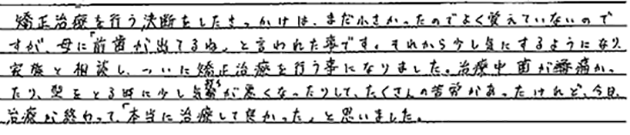 矯正治療を行う決断をしたきっかけは、まだ小さかったのでよく覚えていないので
すが、母に「前歯が出てるね」と言われた事です。それから少し気にするようになり、
家族と相談し、ついに矯正治療を行う事になりました。治療中歯が痛か
たり、型をとる時に少し気分が悪くなったりして、たくさんの苦労があったけれど、今日、
治療が終わって、「本当に治療して良かった」と思いました。